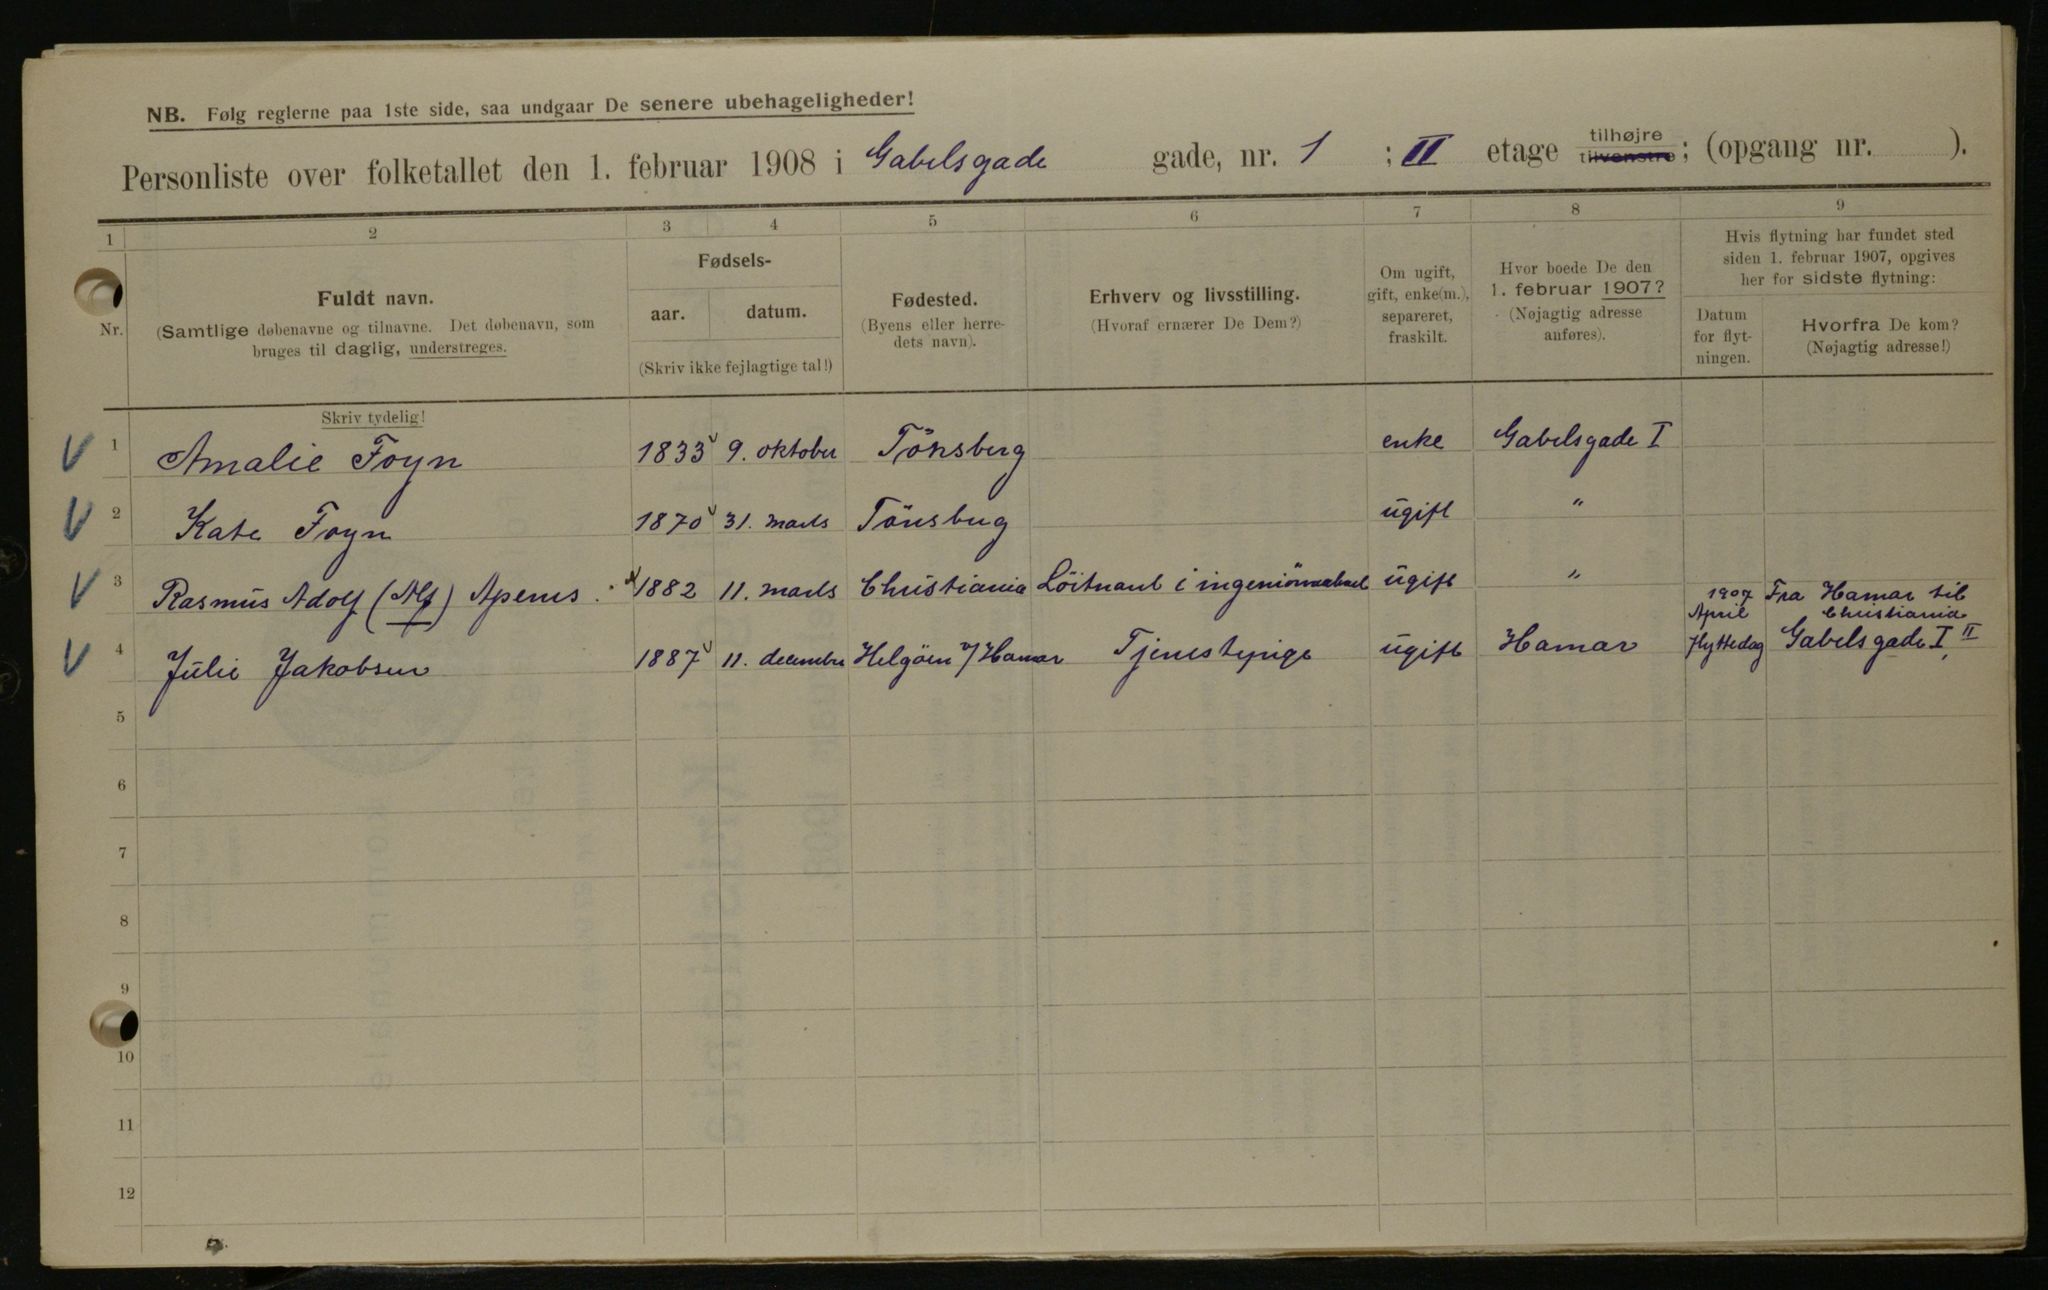 NB. Følg reglerne paa 1ste side, saa undgaar De senere ubehageligheder!
Personliste over folketallet den 1. februar 1908 i Gabelsgade gade, nr. 1 ; II etage tilhøjre tilvenstre; (opgang nr. ).
1 2 3 4 5 6 7 8 9
Nr.
Fuldt navn.
(Samtlige døbenavne og tilnavne. Det døbenavn, som
bruges til daglig, understreges.
Fødsels-
aar. datum.
(Skriv ikke fejlagtige tal!)
Fødested.
(Byens eller herre-
dets navn).
Erhverv og livsstilling.
(Hvoraf ernærer De Dem?)
Om ugift,
gift, enke(m.),
separeret,
fraskilt.
Hvor boede De den
1. februar 1907?
(Nøjagtig adresse
anføres).
Hvis flytning har fundet sted
siden 1. februar 1907, opgives
her for sidste flytning:
Datum
for flyt-
ningen.
Hvorfra De kom?
(Nøjagtig adresse!)
Skriv tydelig!
1 Amalie Foyn 1833 9. oktober Tönsberg enke Gabelsgade I
2 Kate Foyn 1870 31. marts Tönsberg ugift "
3 Rasmus Adolf (Alf) Apenes 1882 11. marts Christiania Löitnant i ugift "
1907 Fra Hamar til
April Christiania
4 Julie Jakobsen 1887 11. decembre Helgöen p/Hamar Tjenestepige ugift Hamar flyttedag Gabelsgade I, II
5
6
7
8
9
10
11
12